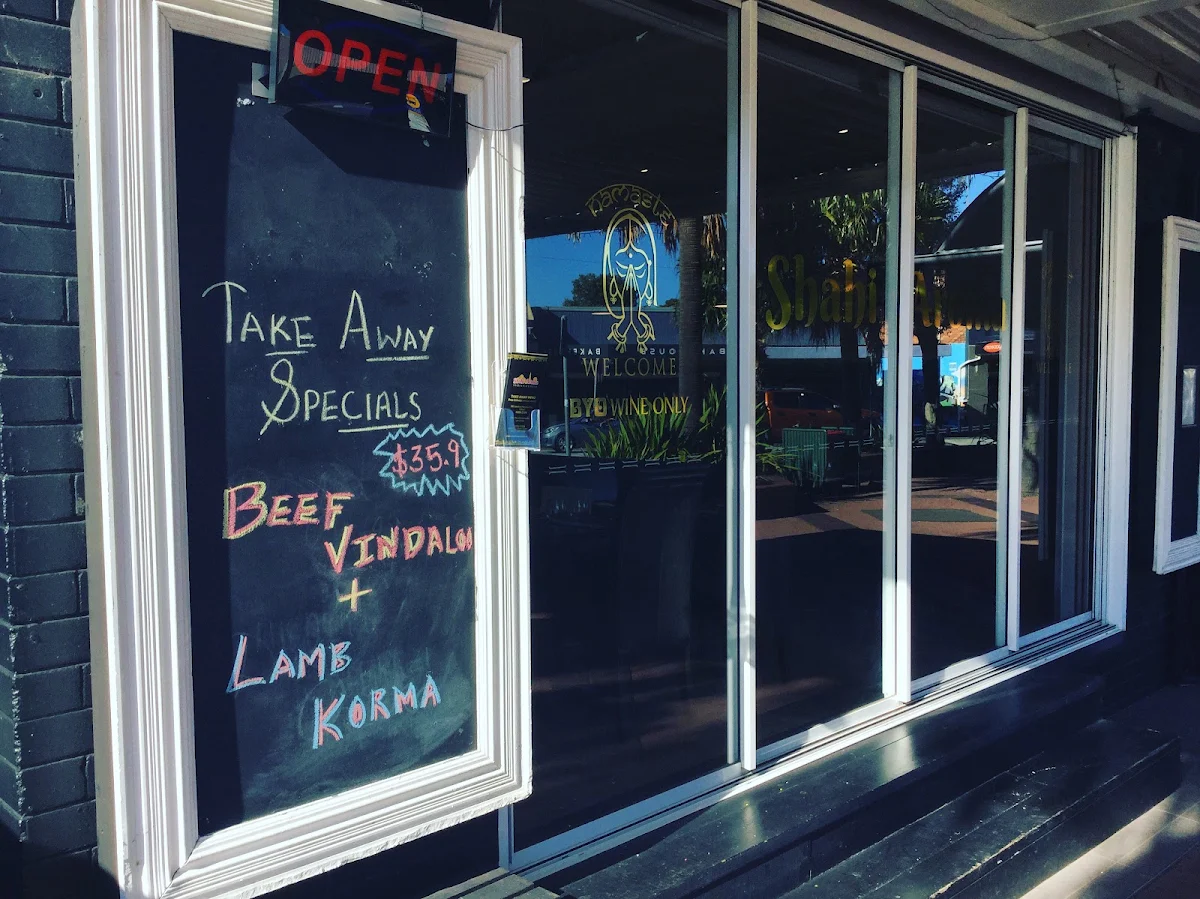 OPEN
TAKE AWAY
SPECIALS
$35.9
BEEF
VINDALOO
+
LAMB
KORMA
namaste
WELCOME
BYO WINE ONLY
Shahi